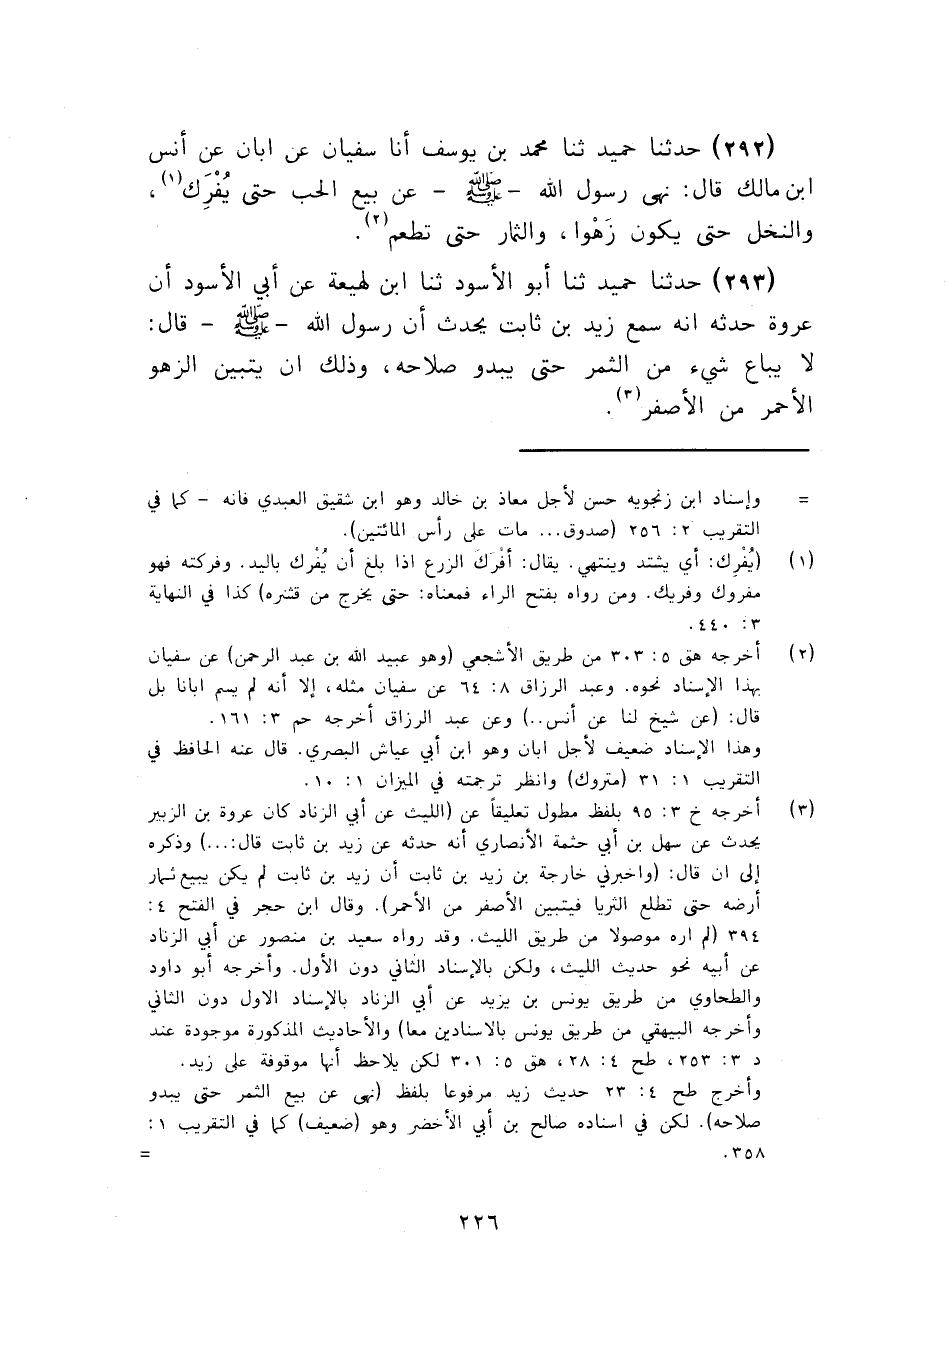 (٢٩٢) حدثنا حميد ثنا محمد بن يوسف أنا سفيان عن ابان عن أنس
ابن مالك قال: نهى رسول الله -ﷺ - عن بيع الحب حتى يُفْرِك(١)،
والنخل حتى يكون زَهْوا، والثمار حتى تطعم(٢).
(٢٩٣) حدثنا حميد ثنا أبو الأسود ثنا ابن لهيعة عن أبي الأسود أن
عروة حدثه انه سمع زيد بن ثابت يحدث أن رسول الله -ﷺ - قال:
لا يباع شيء من الثمر حتى يبدو صلاحه، وذلك ان يتبين الزهو
الأحمر من الأصفر(٣).
= وإسناد ابن زنجويه حسن لأجل معاذ بن خالد وهو ابن شقيق العبدي فانه - كما في
التقريب ٢: ٢٥٦ (صدوق... مات على رأس المائتين).
(١) (يُفْرِك: أي يشتد وينتهي. يقال: أفْرَكَ الزرع اذا بلغ أن يُفْرك باليد. وفركته فهو
مفروك وفريك. ومن رواه بفتح الراء فمعناه: حتى يخرج من قشره) كذا في النهاية
٣: ٤٤٠.
(٢) أخرجه هق ٥: ٣٠٣ من طريق الأشجعي (وهو عبيد الله بن عبد الرحمن) عن سفيان
بهذا الإسناد نحوه. وعبد الرزاق ٨: ٦٤ عن سفيان مثله، إلا أنه لم يسم ابانا بل
قال: (عن شيخ لنا عن أنس..) وعن عبد الرزاق أخرجه حم ٣: ١٦١.
وهذا الإسناد ضعيف لأجل ابان وهو ابن أبي عياش البصري. قال عنه الحافظ في
التقريب ١: ٣١ (متروك) وانظر ترجمته في الميزان ١: ١٠.
(٣) أخرجه خ ٣: ٩٥ بلفظ مطول تعليقاً عن (الليث عن أبي الزناد كان عروة بن الزبير
يحدث عن سهل بن أبي حثمة الأنصاري أنه حدثه عن زيد بن ثابت قال:...) وذكره
إلى ان قال: (واخبرني خارجة بن زيد بن ثابت أن زيد بن ثابت لم يكن يبيع ثمار
أرضه حتى تطلع الثريا فيتبين الأصفر من الأحمر). وقال ابن حجر في الفتح ٤:
٣٩٤ (لم اره موصولا من طريق الليث. وقد رواه سعيد بن منصور عن أبي الزناد
عن أبيه نحو حديث الليث، ولكن بالإسناد الثاني دون الأول. وأخرجه أبو داود
والطحاوي من طريق يونس بن يزيد عن أبي الزناد بالإسناد الاول دون الثاني
وأخرجه البيهقي من طريق يونس بالاسنادين معا) والأحاديث المذكورة موجودة عند
د ٣: ٢٥٣، طح ٤: ٢٨، هق ٥: ٣٠١ لكن يلاحظ أنها موقوفة على زيد.
وأخرج طح ٤: ٢٣ حديث زيد مرفوعا بلفظ (نهى عن بيع الثمر حتى يبدو
صلاحه). لكن في اسناده صالح بن أبي الأخضر وهو (ضعيف) كما في التقريب ١:
٣٥٨. =
٢٢٦